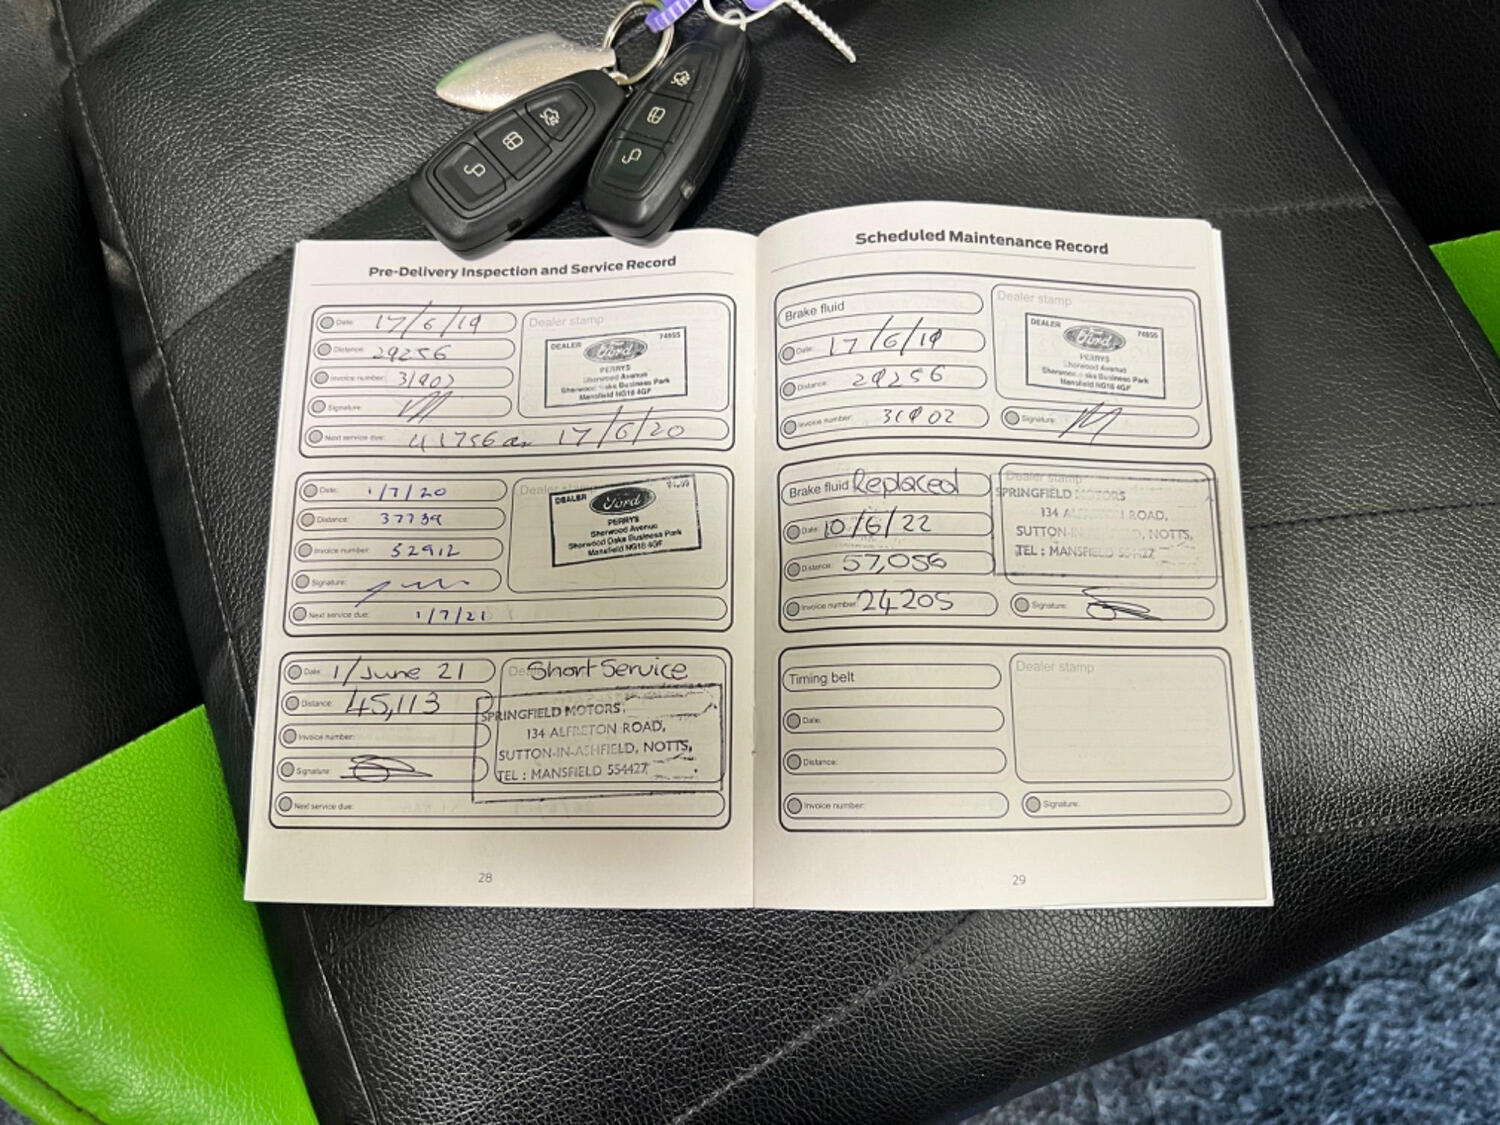 Pre-Delivery Inspection and Service Record
Date: 17/6/19
Distance: 29256
Invoice number: 31902
Signature:
Next service due: 41756 or 17/6/20
Dealer stamp
DEALER 74955
Ford
PERRYS
Sherwood Avenue
Sherwood Oaks Business Park
Mansfield NG18 4GF
Date: 1/7/20
Distance: 37739
Invoice number: 52912
Signature:
Next service due: 1/7/21
Dealer stamp
DEALER
Ford
PERRYS
Sherwood Avenue
Sherwood Oaks Business Park
Mansfield NG18 4GF
Date: 1/June 21
Distance: 45,113
Invoice number:
Signature:
Next service due:
Short Service
SPRINGFIELD MOTORS,
134 ALFRETON ROAD,
SUTTON-IN-ASHFIELD, NOTTS,
TEL : MANSFIELD 554427
28
Scheduled Maintenance Record
Brake fluid
Date: 17/6/19
Distance: 29256
Invoice number: 31902
Dealer stamp
DEALER 74955
Ford
PERRYS
Sherwood Avenue
Sherwood Oaks Business Park
Mansfield NG18 4GF
Signature:
Brake fluid Replaced
Date: 10/6/22
Distance: 57,056
Invoice number: 24205
Dealer stamp
SPRINGFIELD MOTORS
134 ALFRETON ROAD,
SUTTON-IN- D, NOTTS,
TEL : MANSFIELD 554427
Signature:
Timing belt
Date:
Distance:
Invoice number:
Dealer stamp
Signature:
29